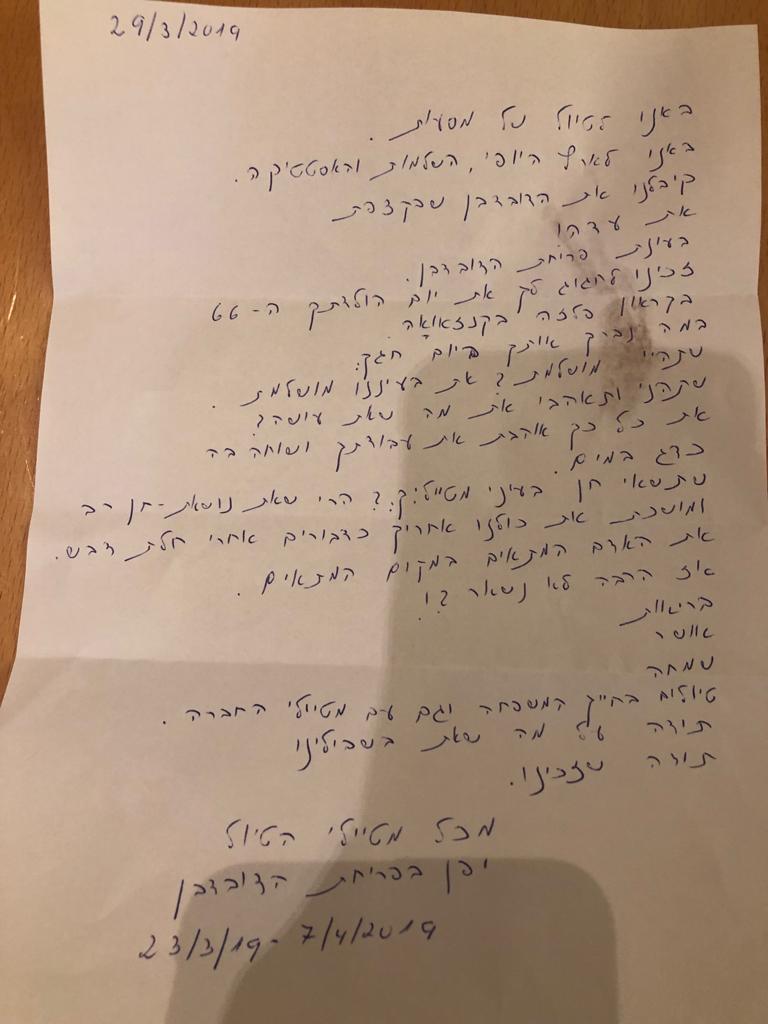 29/3/2019
באנו לטיול של מסעות.
באנו לארץ היופי, השלמות והאסטטיקה.
קיבלנו את הדובדבן שבקצפת
את עדה!
בעונת פריחת הדובדבן.
זכינו לחגוג לך את יום הולדתך ה-66
בקראון פלזה בקנזאווה
במה נברך אותך ביום חגך:
שתהיי מושלמת? את בעיננו מושלמת.
שתהני ותאהבי את מה שאת עושה?
את כל כך אוהבת את עבודתך ושוחה בה
כדג במים.
שתשאי חן בעיני מטייליך? הרי שאת נושאת-חן רב
ומושכת את כולנו אחריך כדבורים אחרי חלת דבש.
את האדם המתאים במקום המתאים.
אז הרבה לא נשאר?!
בריאות
אושר
שמחה
טיולים בחיק המשפחה וגם עם מטיילי החברה.
תודה על מה שאת בשבילינו
תודה שזכינו.
מכל מטיילי הטיול
יפן בפריחת הדובדבן
23/3/19- 7/4/2019